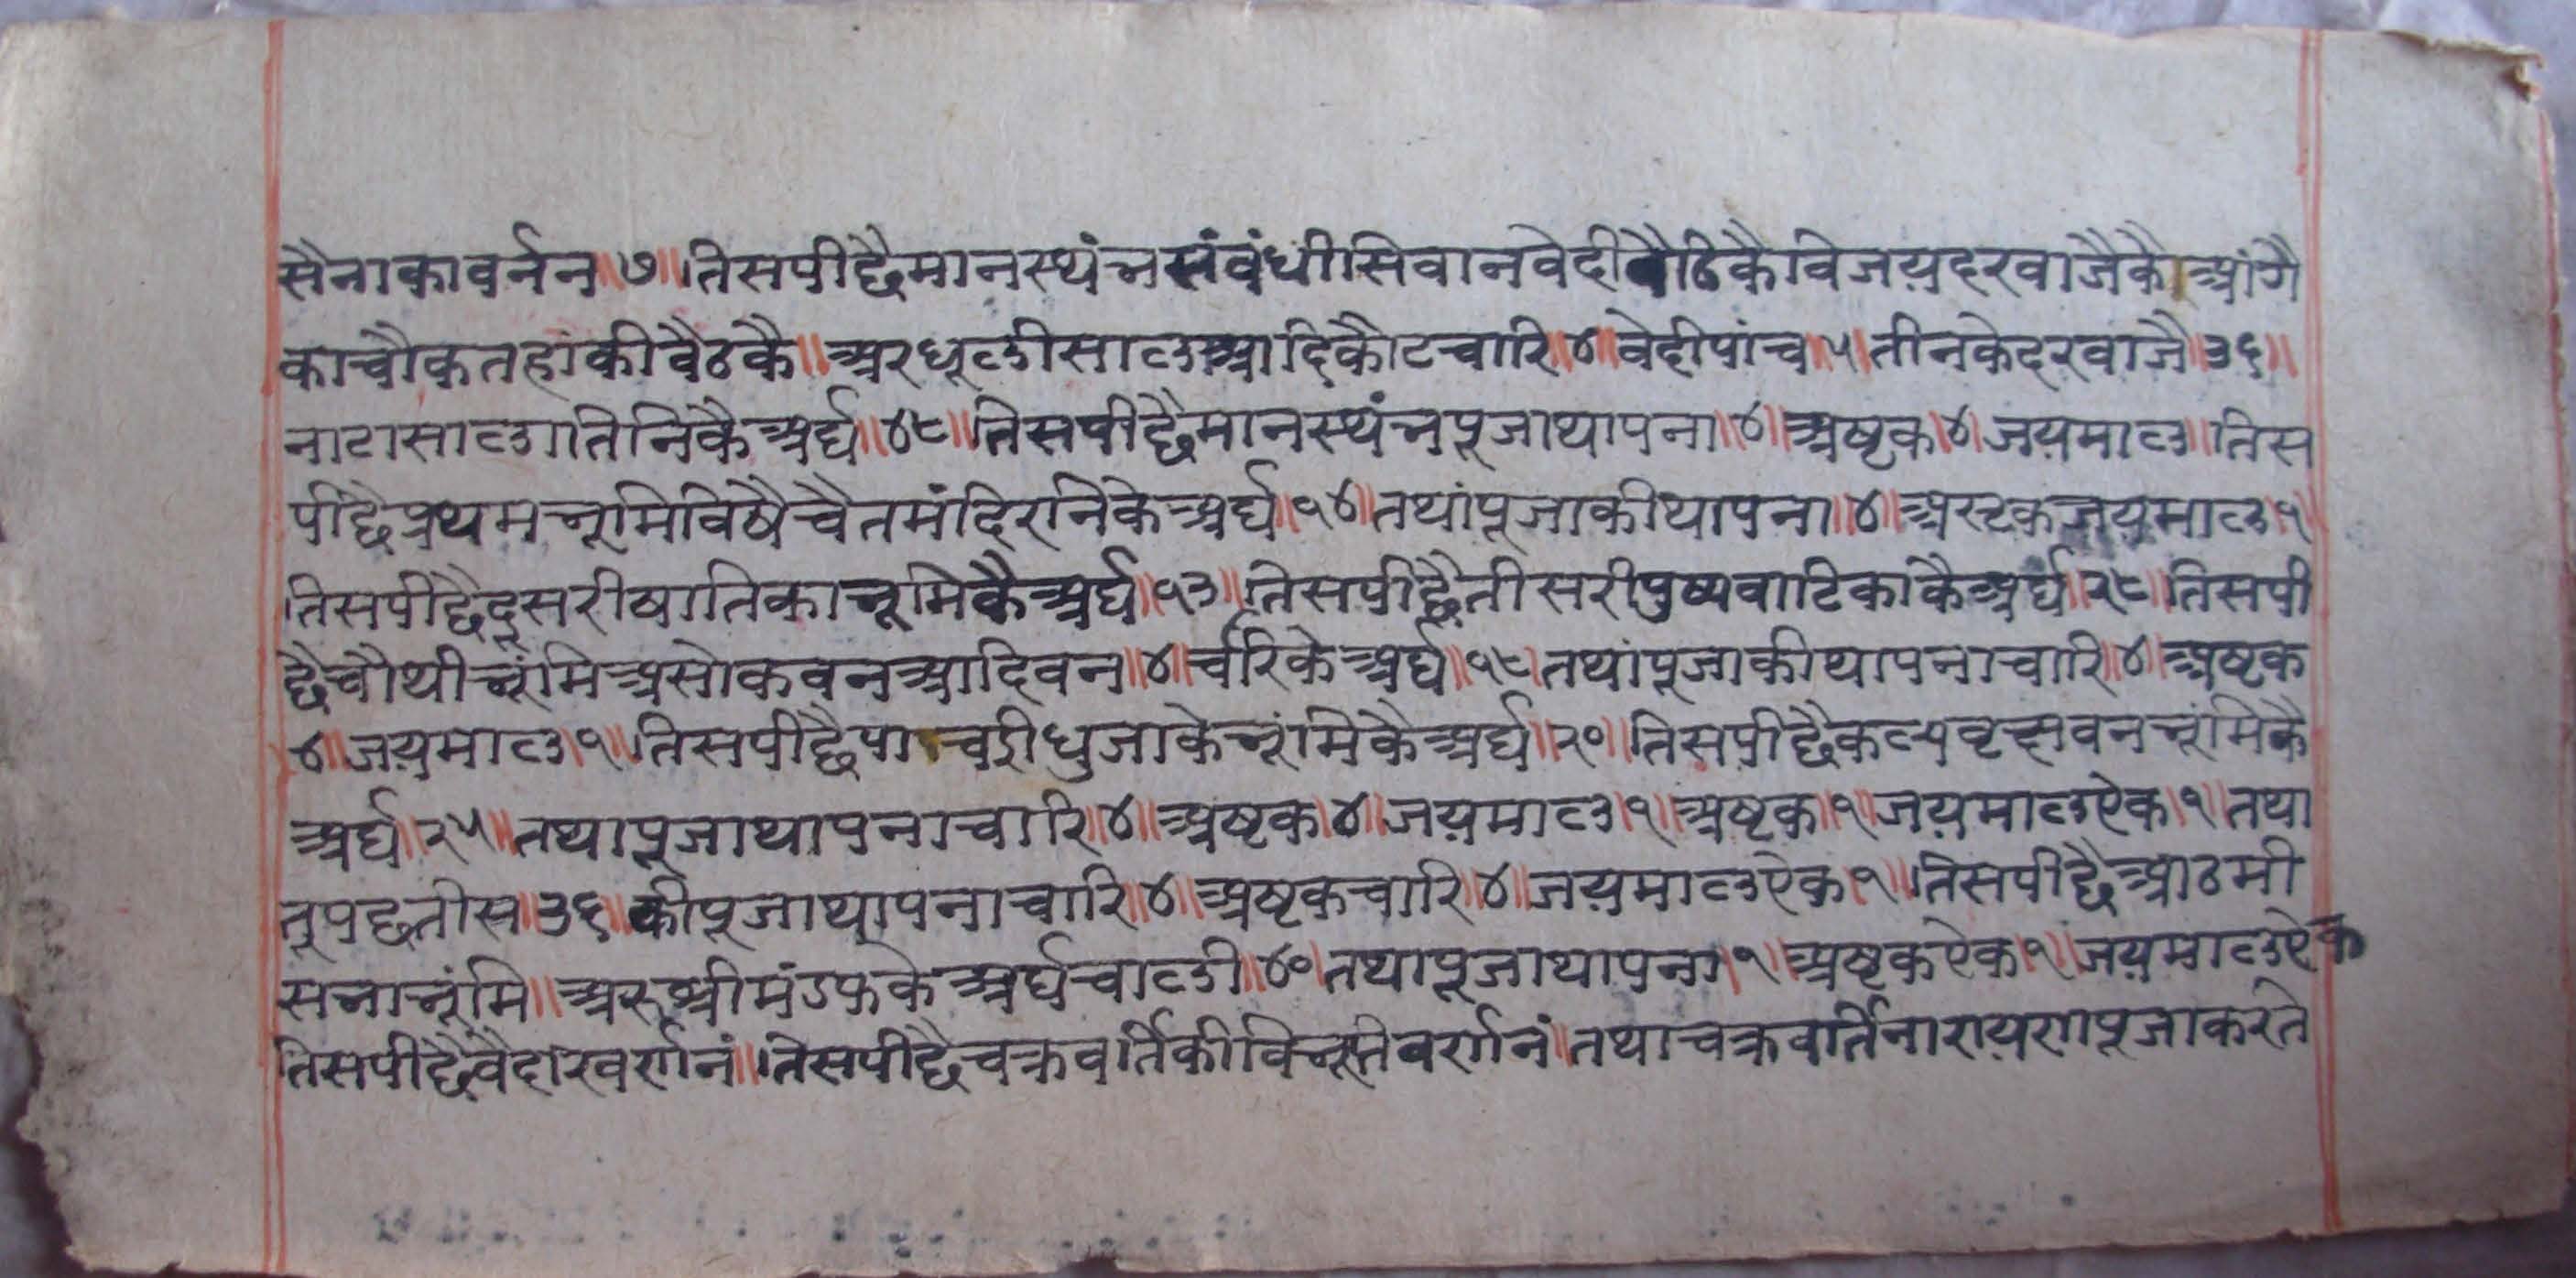 सैनाकावर्नन॥७॥तिसपीछैमानस्थंभसंवंधीसिवानवेदीवैठिकैविजय़दरवाजैकैआंगै
काचौकतहांकीवैठकै॥अरधूलीसालआदिकौटचारि॥४॥वेदीपांच॥५॥तीनकेदरवाजै॥३६॥
नाटासाला।तिनिकैअर्घ॥४८॥तिसपीछैमानस्थंभपूजाथापना॥४॥अष्टक॥४॥जय़माल॥तिस
पीछैप्रथमभूमिविषैचैतमंदिरनिकेअर्घ॥१४॥तथांपूजाकीथापना॥४॥अस्टकजय़माल॥१॥
तिसपीछैदूसरीषातिकाभूमिकैअर्घ॥१३॥तिसपीछैतीसरीपुष्पवाटिकाकैअर्घ॥२८॥तिसपी
छैचौथीभूंमिअसोकवनआदिवन॥४॥चरिकेअर्घ॥१८॥तथांपूजाकीथापनाचारि॥४॥अष्टक
४॥जय़माल॥१॥तिसपीछैपाचईधुजाकेभूंमिकैअर्घ॥२०॥तिसपीछैकल्पवृक्षवनभूंमिकै
अर्घ॥२५॥तथापूजाथापनाचारि॥४॥अष्टक॥४॥जय़माल॥१॥अष्टक॥१॥जय़मालऐक॥१॥तथा
तूपछतीस॥३६॥कीपूजाथापनाचारि॥४॥अष्टकचारि॥४॥जय़मालऐक॥१॥तिसपीछैआठमी
सभाभूंमि॥अरुश्रीमंडफकेअर्घचाली॥४०॥तथापूजाथापना॥१॥अष्टकऐक॥१॥जय़मालऐक
तिसपीछैवैहारवर्णनं॥तिसपीछैचक्रवर्तिकीविभूतिवर्णनं॥तथाचक्रवर्तिनाराय़णपूजाकरते